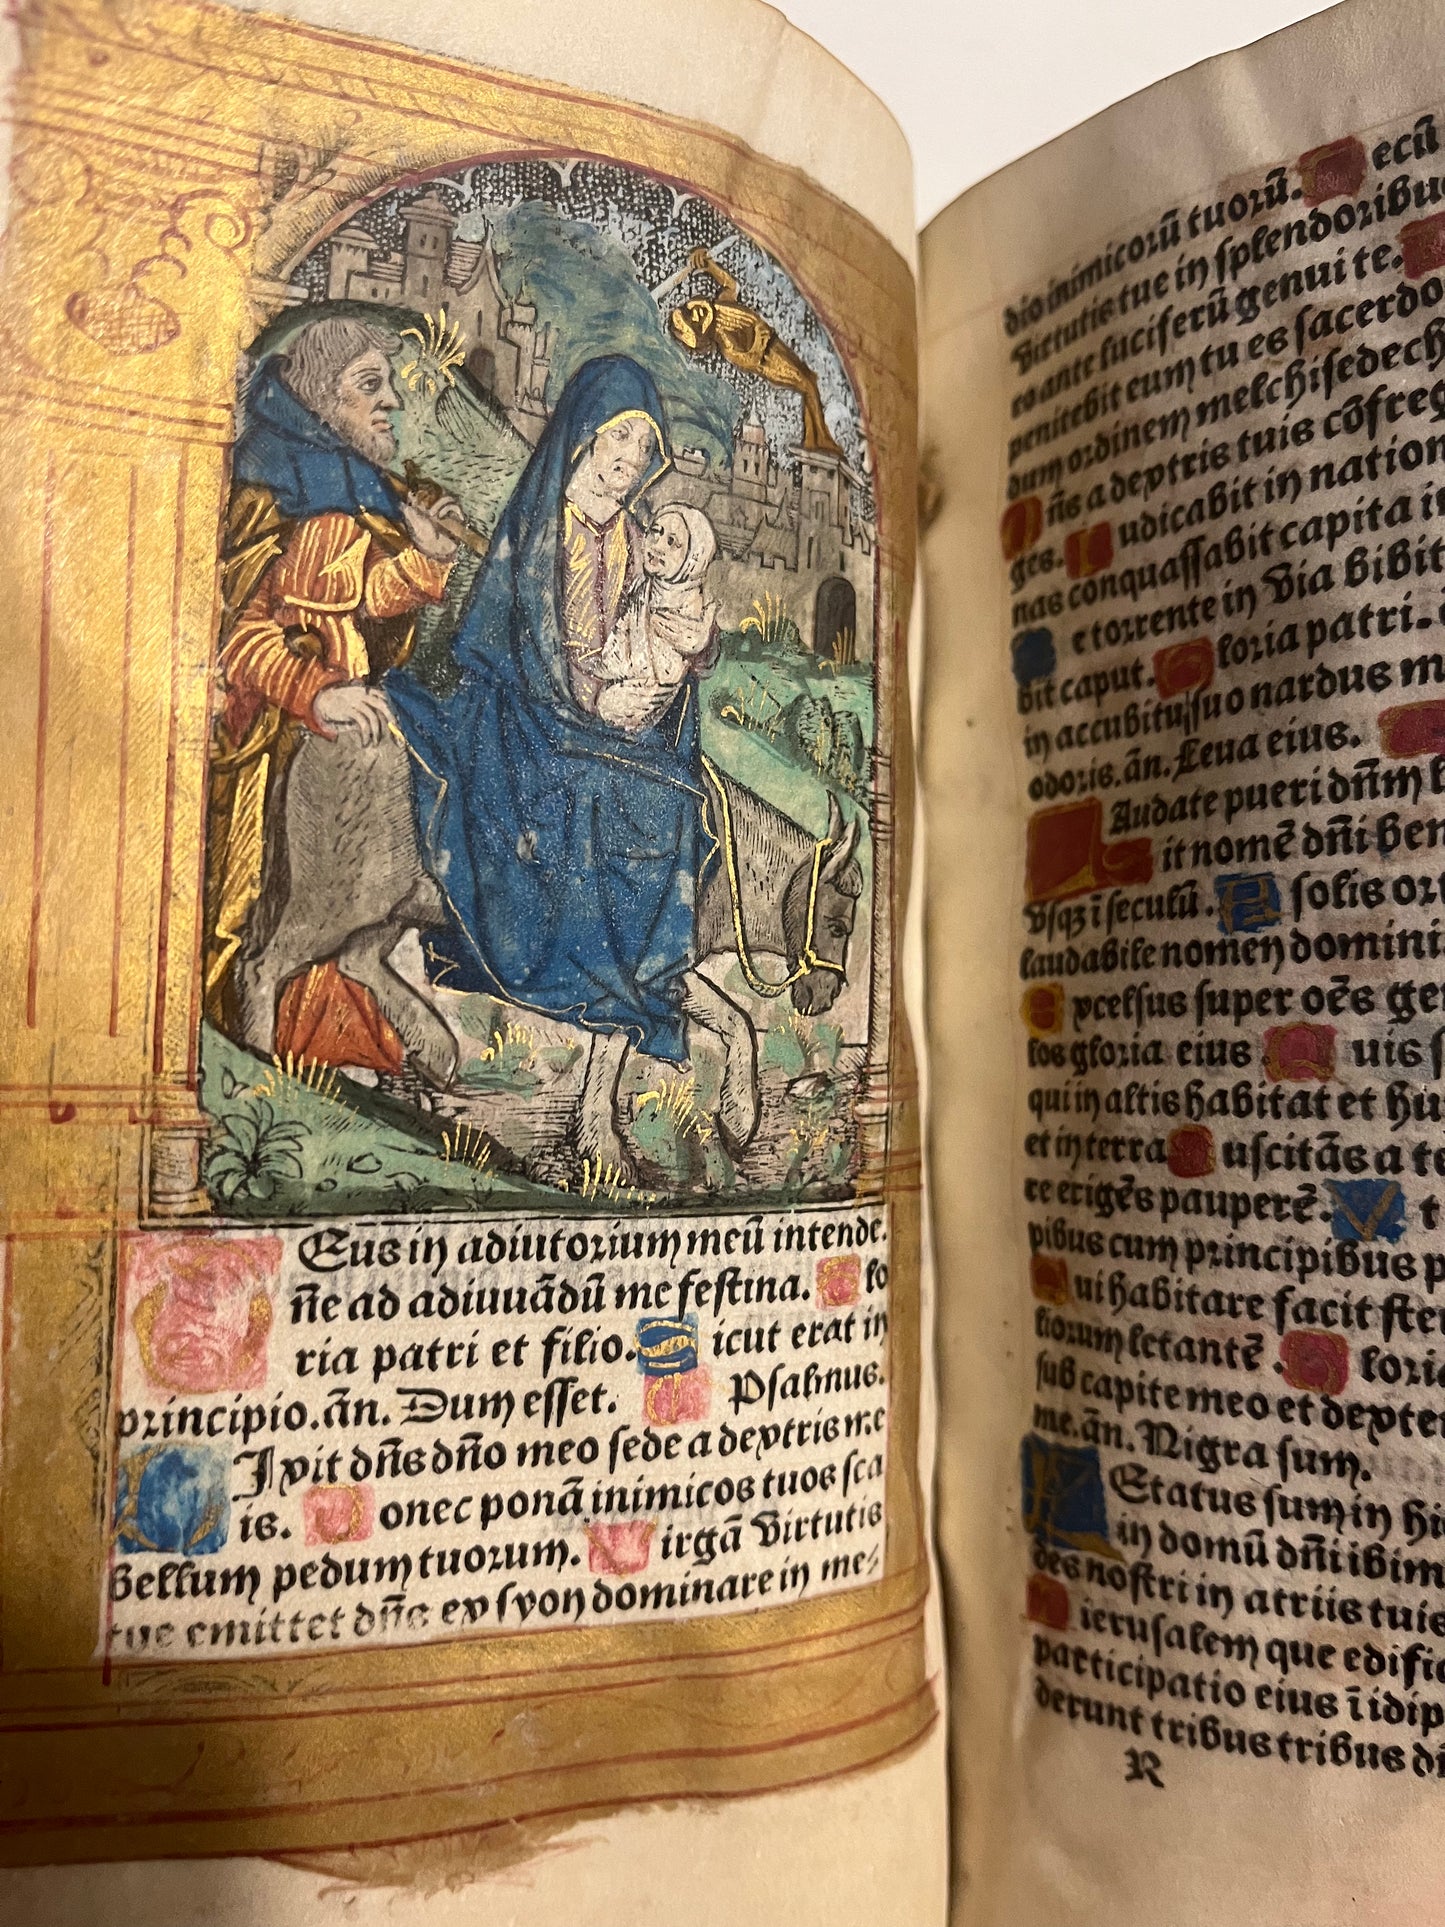 Eus in adiutorium meū intende.
ñe ad adiuuādū me festina. Glo
ria patri et filio. Sicut erat in
principio. ān. Dum esset. Psalmus.
Dixit dñs dño meo sede a dextris me
is. Donec ponā inimicos tuos sca
bellum pedum tuorum. Virgā virtutis
tue emittet dñs ex syon dominare in me-
dio inimicorū tuorū. Tecū
virtutis tue in splendoribus
ro ante luciferū genui te.
penitebit eum tu es sacerdo
dum ordinem melchisedech
Dñs a deptris tuis cōfreg
ges. Iudicabit in nation
nas conquassabit capita in
De torrente in via bibit
bit caput. Gloria patri.
in accubitu suo nardus m
odoris. ān. Leua eius.
Laudate pueri dñm l
it nomē dñi ben
vsqz ī seculū. A solis ort
laudabile nomen domini
Excelsus super oēs gen
los gloria eius. Quis s
qui in altis habitat et hu
et in terra Suscitās a te
re erigēs pauperē. Vt
pibus cum principibus p
Qui habitare facit ste
liorum letantē. Glori
sub capite meo et dexte
me. ān. Nigra sum.
Letatus sum in hi
in domū dñi ibim
des nostri in atriis tuis
Hierusalem que edific
participatio eius ī idip
derunt tribus tribus dñ
R